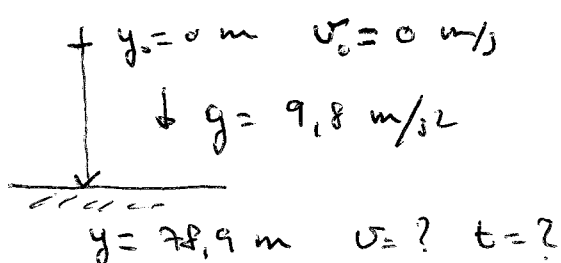 y₀ = 0 m v₀ = 0 m/s
↓ g = 9,8 m/s2
y = 78,9 m v = ? t = ?